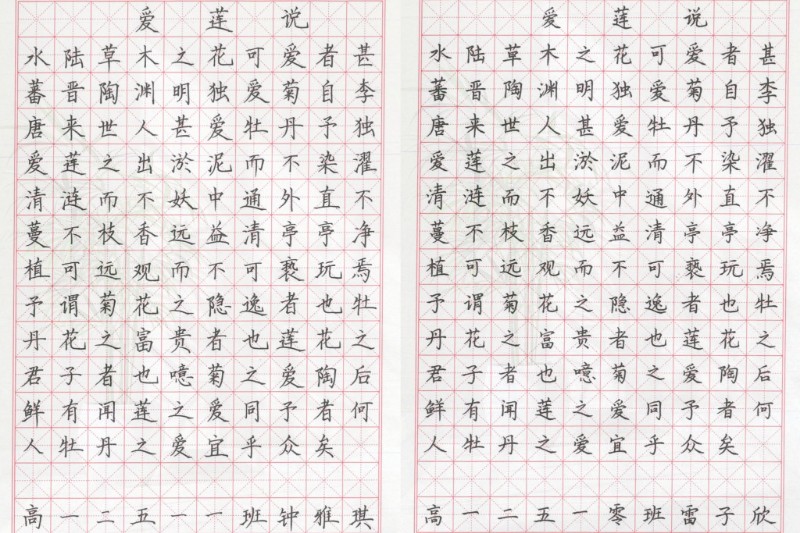 爱莲说
水陆草木之花可爱者甚
蕃晋陶渊明独爱菊自李
唐来世人甚爱牡丹予独
爱莲之出淤泥而不染濯
清涟而不妖中通外直不
蔓不枝香远益清亭亭净
植可远观而不可亵玩焉
予谓菊花之隐逸者也牡
丹花之富贵者也莲花之
君子者也噫菊之爱陶后
鲜有闻莲之爱同予者何
人牡丹之爱宜乎众矣
高一二五一一班钟雅琪
爱莲说
水陆草木之花可爱者甚
蕃晋陶渊明独爱菊自李
唐来世人甚爱牡丹予独
爱莲之出淤泥而不染濯
清涟而不妖中通外直不
蔓不枝香远益清亭亭净
植可远观而不可亵玩焉
予谓菊花之隐逸者也牡
丹花之富贵者也莲花之
君子者也噫菊之爱陶后
鲜有闻莲之爱同予者何
人牡丹之爱宜乎众矣
高一二五一零班雷子欣